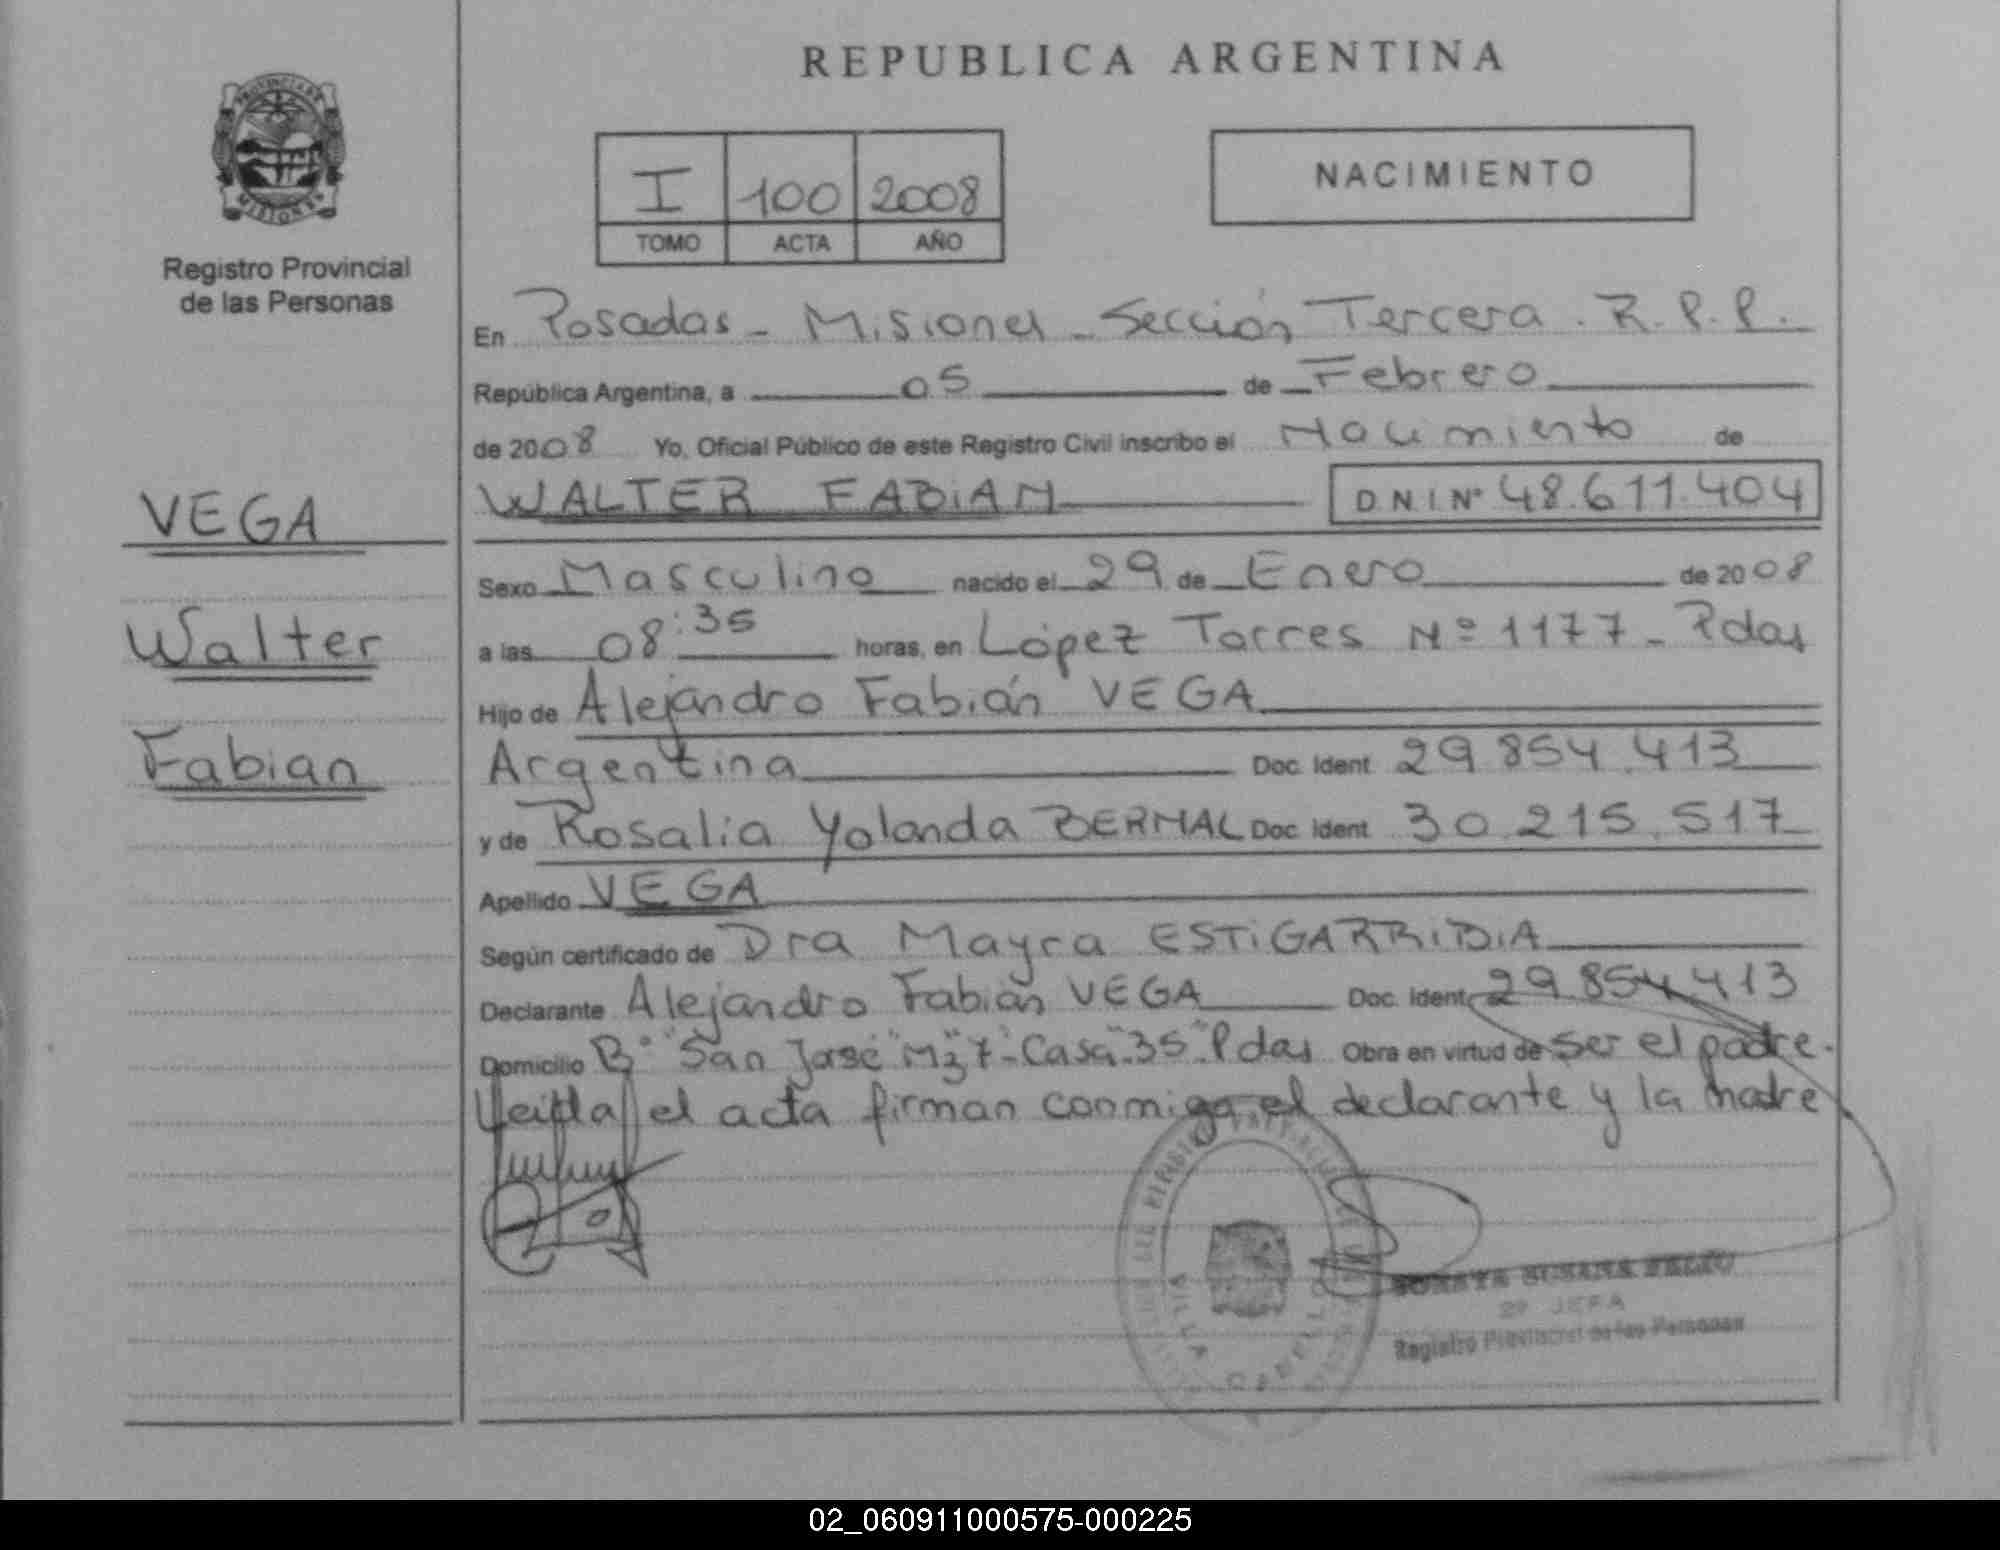 REPUBLICA ARGENTINA
PROVINCIA DE
MISIONES
Registro Provincial
de las Personas
I 100 2008
TOMO ACTA AÑO
NACIMIENTO
En Posadas - Misiones - Sección Tercera. R.P.P.
República Argentina, a 05 de Febrero
de 2008 Yo, Oficial Público de este Registro Civil inscribo el Nacimiento de
WALTER FABIAN D N I Nº 48.611.404
VEGA
Walter
Fabian
Sexo Masculino nacido el 29 de Enero de 2008
a las 08:35 horas, en López Torres Nº 1177 - Pdas
Hijo de Alejandro Fabián VEGA
Argentina Doc. Ident 29.854.413
y de Rosalia Yolanda BERNAL Doc. Ident 30.215.517
Apellido VEGA
Según certificado de Dra Mayra ESTIGARRIBIA
Declarante Alejandro Fabián VEGA Doc. Ident 29.854.413
Domicilio Bº "San José" Mz 7 - Casa "35" Pdas Obra en virtud de ser el padre.
Leída el acta firman conmigo, el declarante y la madre
VILLA CABELLO
SUSANA
2º JEFA
Registro Provincial de las Personas
02_060911000575-000225